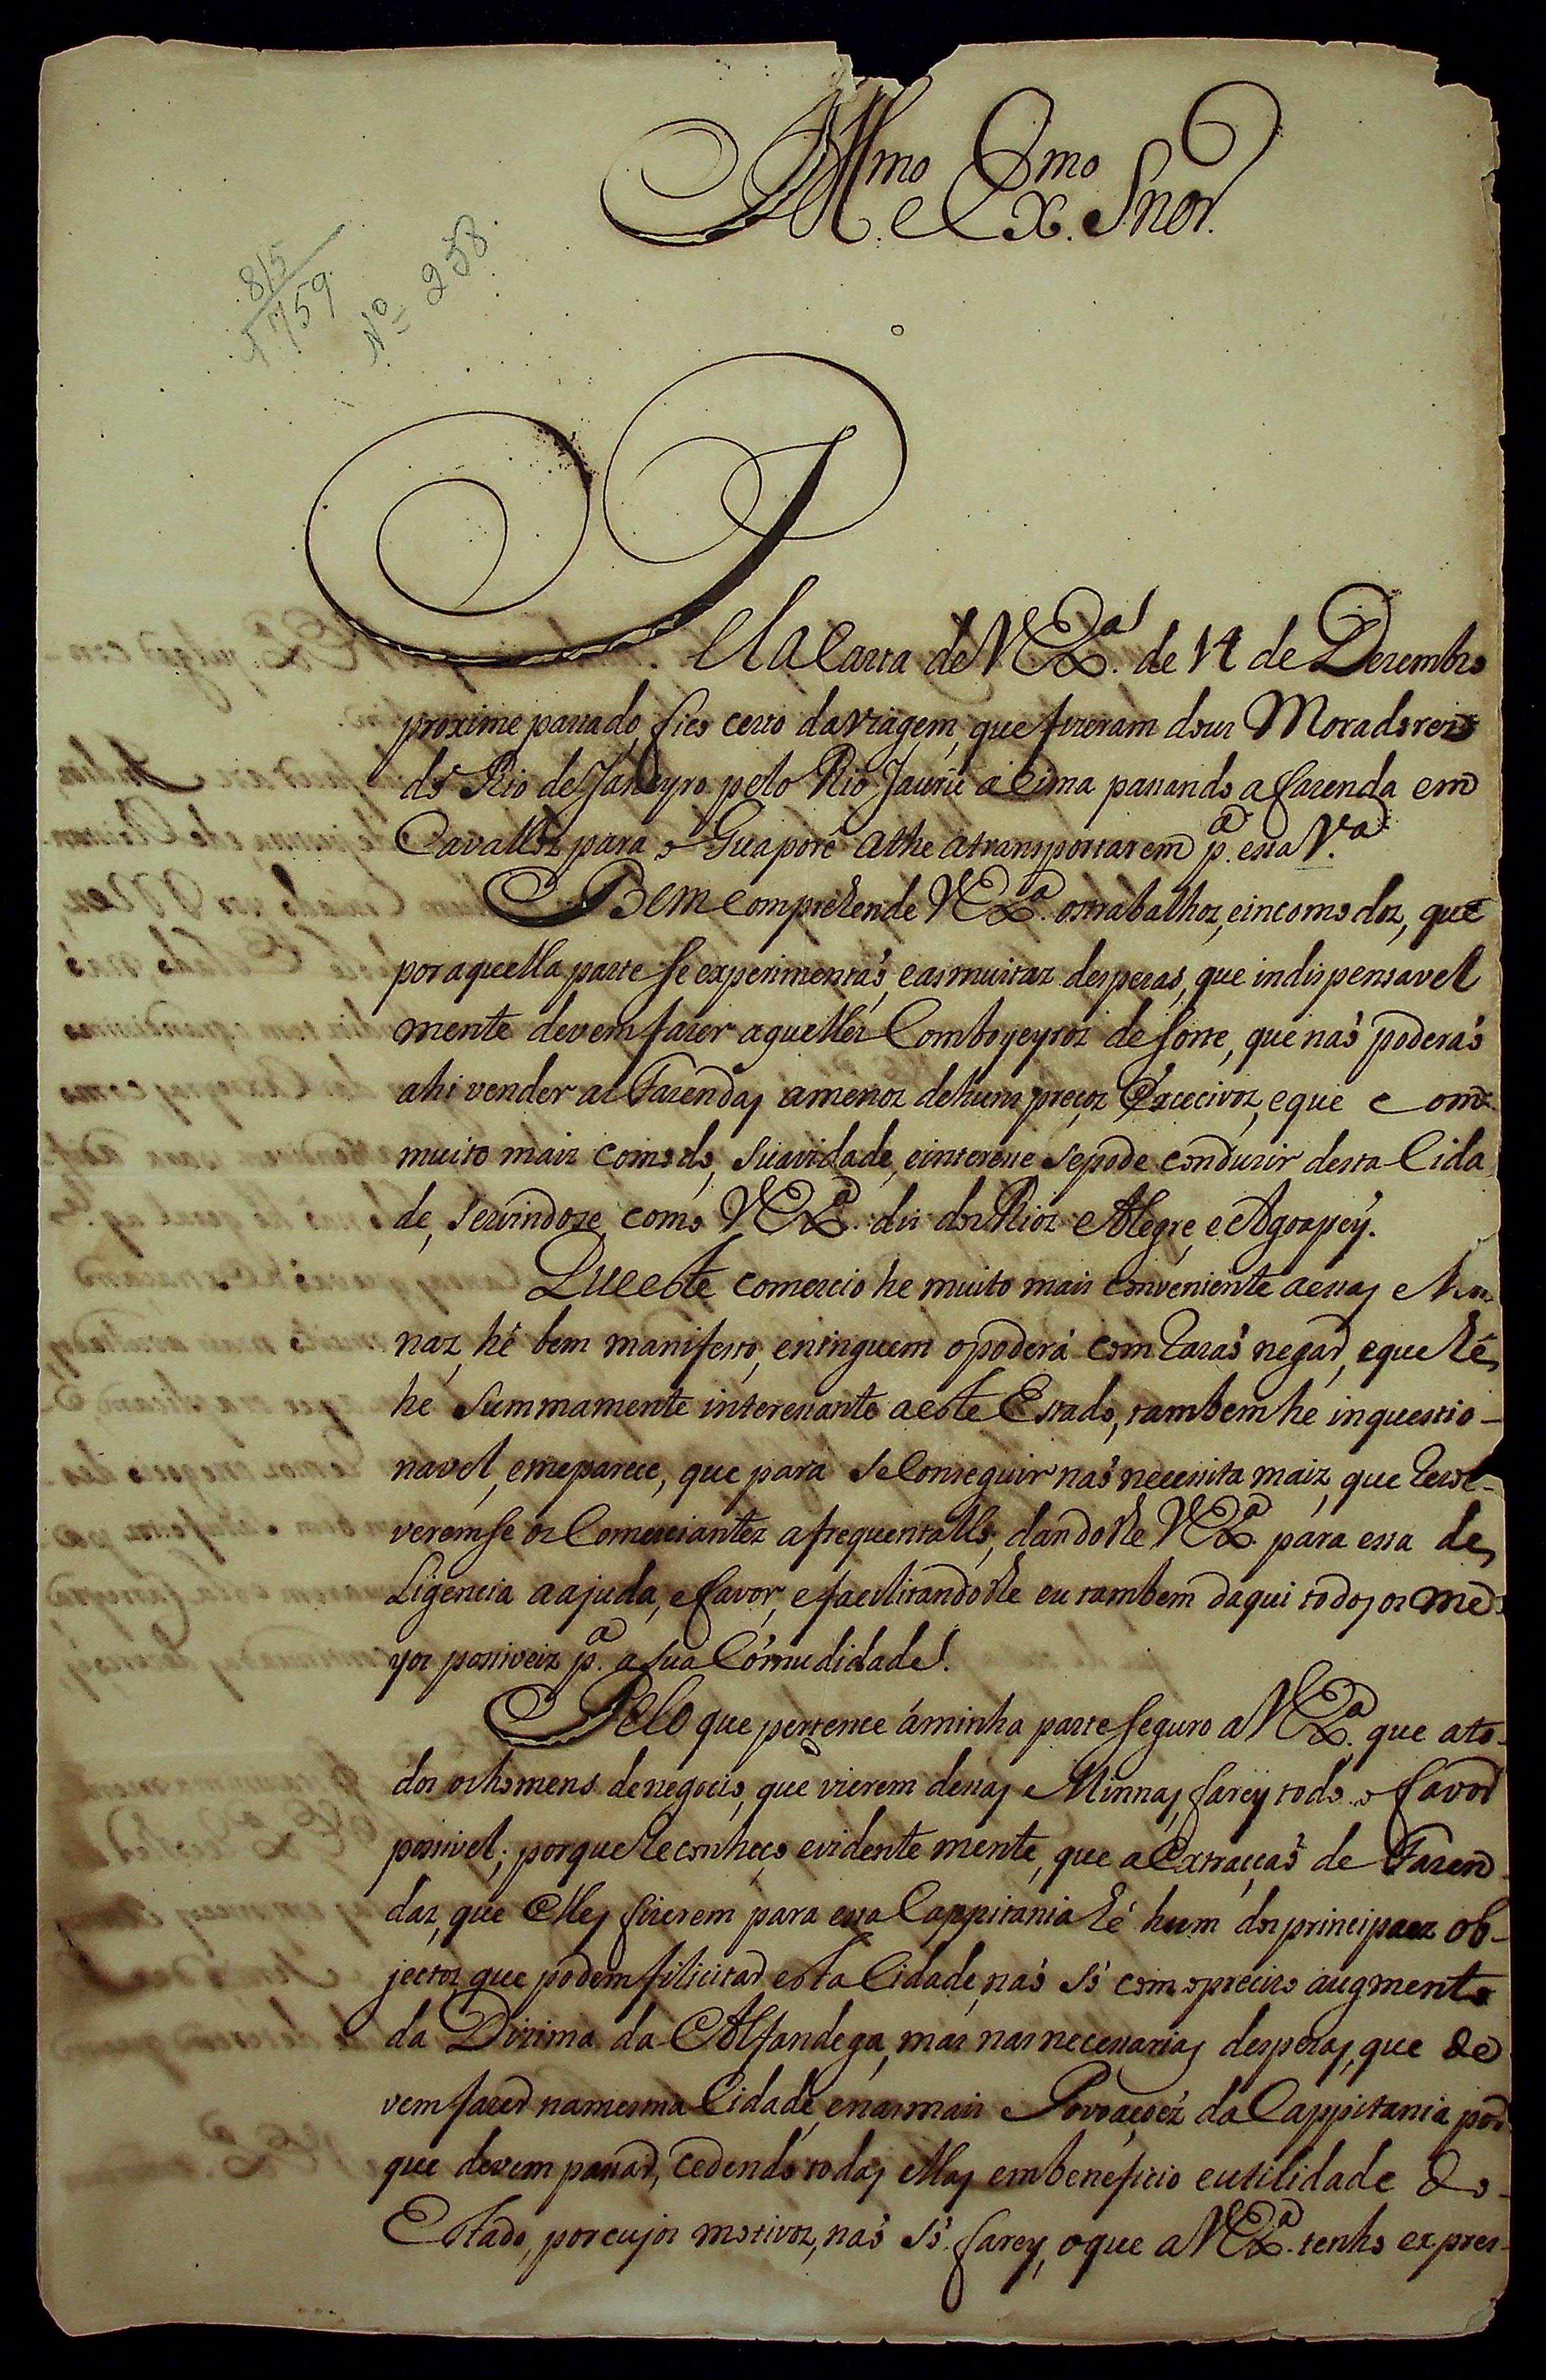 Ill.mo e Ex.mo Snor.
815
1759
Nº 238
Pella Carta de V Ex.ª de 14 de Dezembro
proxime passado, fico certo da viagem, que fizeram dous Moradores
do Rio de Janeyro pelo Rio Jaurú aSima passando a fazenda em
Cavallos para o Guaporé athe a transportarem p.ª essa V.ª
Bem comprehende V Ex.ª os trabalhos, eincomodos, que
por aquella parte se experimentaõ, e as muitas despezas, que indispensavel
mente devem fazer aquelles Comboyeyros de sorte, que naõ poderaõ
ahi vender as Fazendas a menos de huns preços Excecivos, e que com
muito mais comodo, suavidade, e interesse se pode conduzir desta Cida
de, servindose, como V Ex.ª diz dos Rios Alegre, e Agoapey.
Que este comercio he muito mais conveniente a essas Min
nas, hé bem manifesto, e ninguem o poderá com Razaõ negar, e que Ré
hé summamente interessante a este Estado, tambem he inquestio-
navel, e me parece, que para se Conseguir naõ necessita mais, que Rezol-
veremse os Comerciantes a frequentallo, dandolhe V Ex.ª para essa de
Ligencia a ajuda, e favor, e facilitandolhe eu tambem daqui todos os me
yos possiveis p.ª a sua Cómudidade.
Pelo que pertence á minha parte seguro a V Ex.ª que a to-
dos os homens de negocio, que vierem dessas Minnas, farey todo o favor
possivel; porque Reconheço evidente mente, que a Extracçaõ de Fazen
das, que Elles fizerem para essa Cappitania hé hum dos principaes ob-
jectos que podem filicitar esta Cidade, naõ só com o precizo augmento
da Dizima da Alfandega, mas nas necessarias despezas, que de
vem fazer na mesma Cidade, e nas mais Povoaçoés da Cappitania por
que devem passar, cedendo todas ellas em beneficio e utilidade do
Estado, por cujos motivos, naõ só farey, o que a V Ex.ª tenho expres-